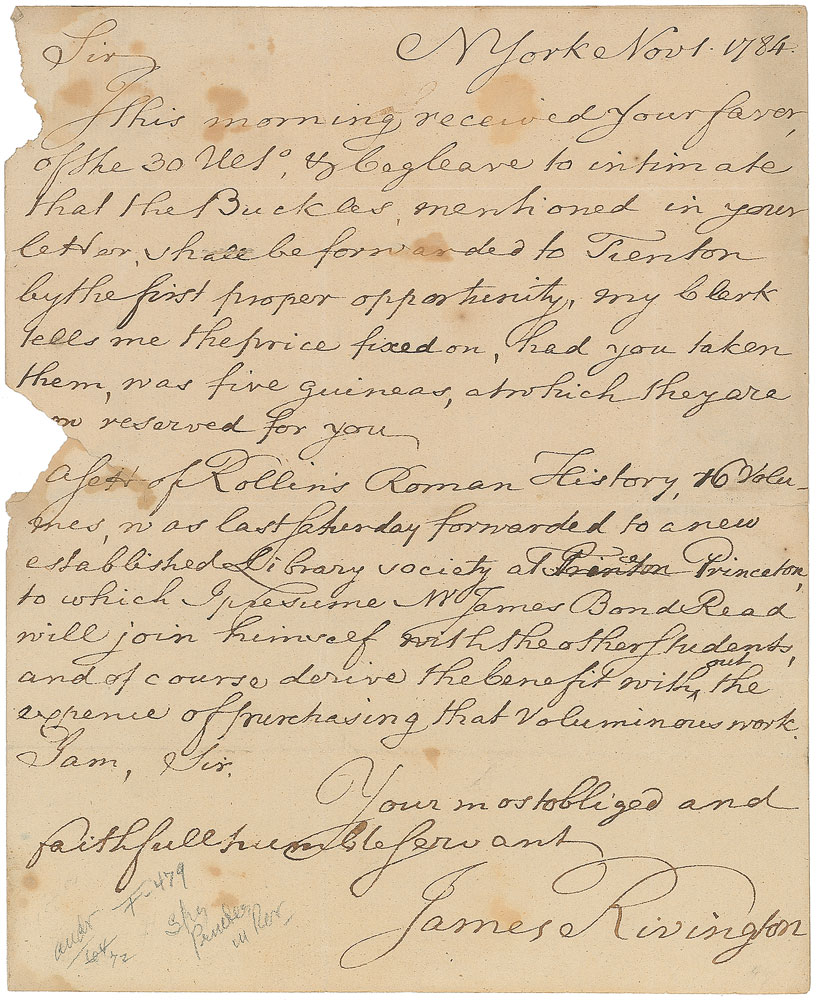 Sir
N York Nov 1. 1784.
I this morning received your favor,
of the 30 Ulto, & beg leave to intimate
that the Buckles, mentioned in your
letter, shall be forwarded to Trenton
by the first proper opportunity, my Clerk
tells me the price fixed on, had you taken
them, was five guineas, at which they are
reserved for you
a sett of Rollin's Roman History, 16 Volu-
mes, was last saturday forwarded to a new
established Library society at Trenton Princeton,
to which I presume Mr James Bond Read
will join himself with the other students,
and of course derive the benefit without the
expence of purchasing that Voluminous work.
I am, Sir.
Your most obliged and
faithfull humble servant
James Rivington
F-479
Spy
in Rev
72